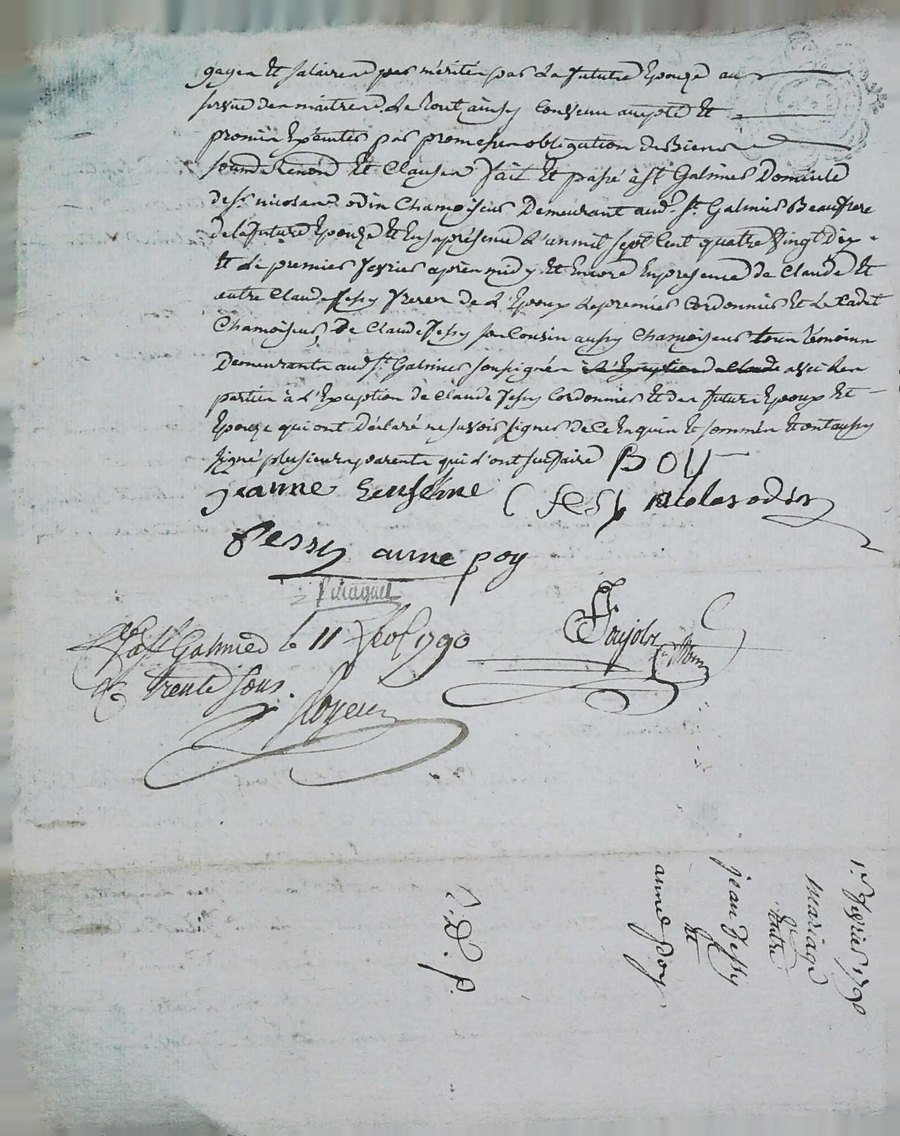 gages et salaires par mérités par la future Epouze au
service des maitres. Le tout ainsy convenu accepté et
promis Executer par promesses obligation de Biens
soum. Renon. Et Clauses fait et passé à St. Galmier Domicile
de sr. nicolas odin Chamoiseur Demeurant aud. St. Galmier Beaufrere
de la future Epouze et En sa présence L'an mil sept cent quatre vingt dix
et le premier fevrier après midy et Encore En présence de Claude Et
autre Claude fessy freres de l'Epoux le premier Cordonnier Et Le Cadet
Chamoiseur, de Claude fessy son Cousin aussy Chamoiseur tous témoins
Demeurants aud. St. Galmier soussignés à l'Exception de Claude avec les
parties à l'Exception de Claude fessy Cordonnier et des futurs Epoux Et
Epouze qui ont Déclaré ne savoir signer de ce Enquis Et sommés Et ont aussy
signé plusieurs parents qui l'ont su faire BOY
jeanne fessy nicolas odin
fessy anne poy
a St Galmier le 11 fev. 1790
trente sous.
1er. fevrier 1790
mariage
Entre
jean fessy
Et
anne poy